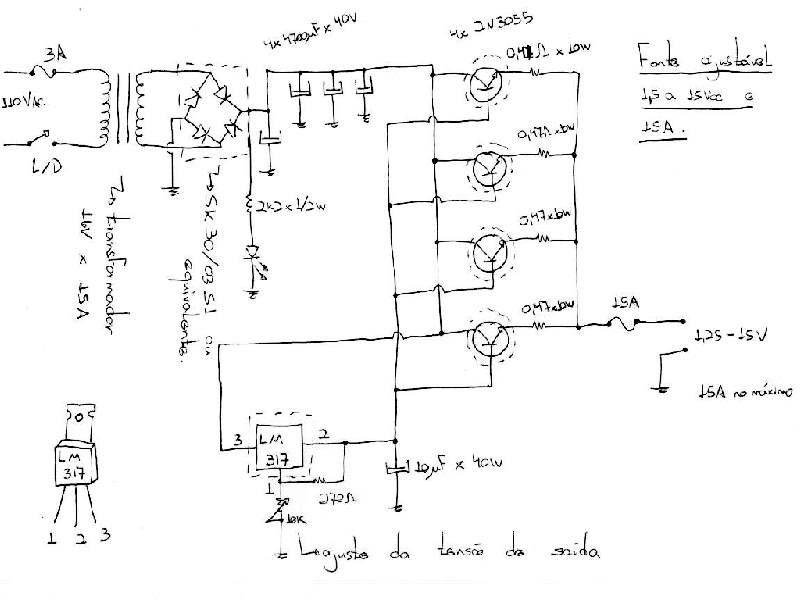 4x4700µF x 40V
4x 2N3055
0,47Ω x 10W
Fonte ajustável
1,5 a 15Vcc e
15A.
3A
110Vac
L/D
0,47Ω x 10W
2k2 x 1/2W
SK 30/03 SI ou
equivalente.
transformador
16V x 15A
0,47 x 10W
0,47 x 10W
15A
1,25 - 15V
15A no máximo
3
LM
317
2
1
270Ω
10K
10µF x 40V
LM
317
1 2 3
ajuste da tensão de saída